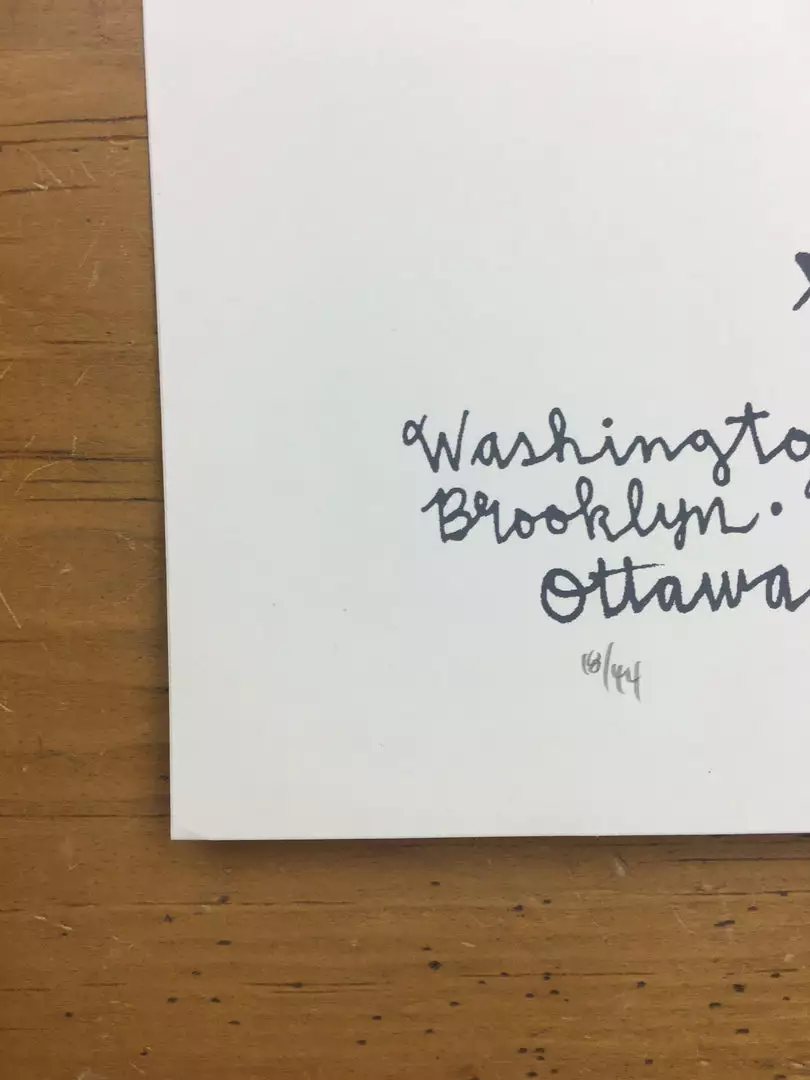 Washingto
Brooklyn •
Ottawa
18/44